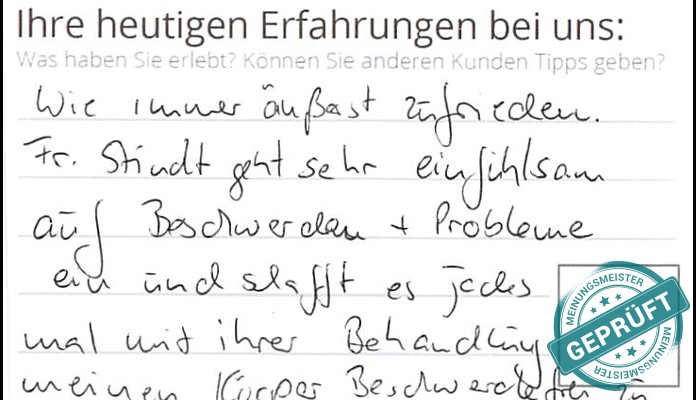 Ihre heutigen Erfahrungen bei uns:
Was haben Sie erlebt? Können Sie anderen Kunden Tipps geben?
Wie immer äußerst zufrieden.
Fr. Stindt geht sehr einfühlsam
auf Beschwerden + Probleme
ein und schafft es jedes
mal mit ihrer Behandlung
meinen Körper Beschwerdefrei zu
MEINUNGSMEISTER
GEPRÜFT
MEINUNGSMEISTER